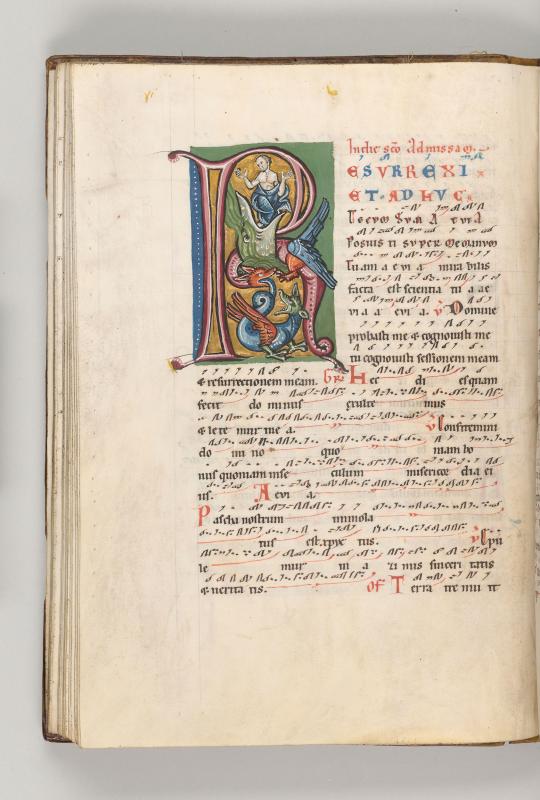 In die sc̄o Ad missam.
R ESVRREXI
ET ADHVC
TECVM SVM A EVIA
Posuisti SVPER me manum
Tuam a e v i a mira bilis
facta est scientia tu a ae
v i a a evi a. v̄ Domine
probasti me & cognovisti me
tu cognovisti sessionem meam
& resurrectionem meam. Gr̄ Hec di es quam
fecit do minus exulte mus
& le te mur in e a. v̄ Confitemini
do mi no quo niam bo
nus quoniam in se culum misericor dia ei
us. A evi a.
Pascha nostrum immola
tus est xp̄c tus. v̄ Epu
le mur in a zi mis sinceri tatis
& verita tis. Of Terra tre mu it